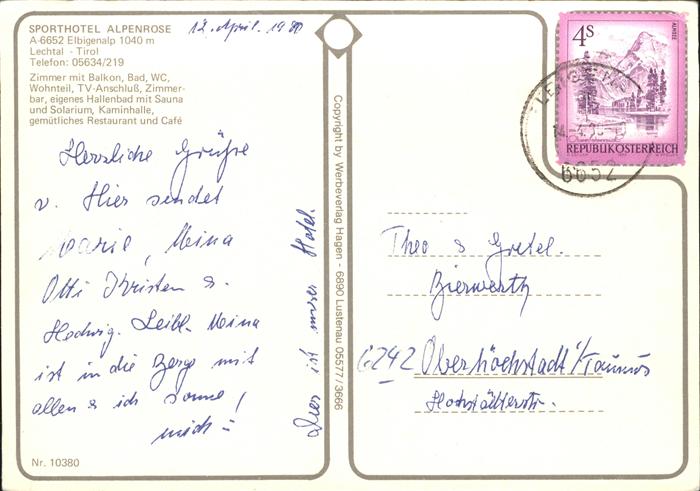 SPORTHOTEL ALPENROSE
A-6652 Elbigenalp 1040 m
Lechtal - Tirol
Telefon: 05634/219
Zimmer mit Balkon, Bad, WC,
Wohnteil, TV-Anschluß, Zimmer-
bar, eigenes Hallenbad mit Sauna
und Solarium, Kaminhalle,
gemütliches Restaurant und Café
12. April. 1980
Herzliche Grüße
v. Hier sendet
Marie, Mina
Otti Kristen &
Hedwig. Leibl. Mina
ist in die Berge mit
allen & ich sonne
mich!
Dies ist unser Hotel.
Nr. 10380
Copyright by Werbeverlag Hagen - 6890 Lustenau 05577/3666
4s
ALMSEE
REPUBLIK ÖSTERREICH
6652
Theo & Gretel.
Bierwerth
6242 Oberhöchstadt i/Taunus
Hochstädterstr.